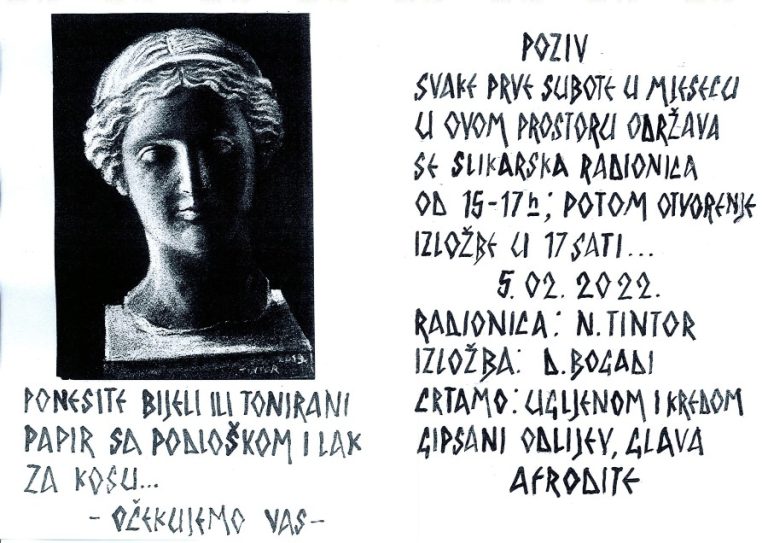 POZIV
SVAKE PRVE SUBOTE U MJESECU
U OVOM PROSTORU ODRŽAVA
SE SLIKARSKA RADIONICA
OD 15-17h; POTOM OTVORENJE
IZLOŽBE U 17 SATI...
5. 02. 2022.
RADIONICA: N. TINTOR
IZLOŽBA: D. BOGADI
CRTAMO: UGLJENOM I KREDOM
GIPSANI ODLIJEV, GLAVA
AFRODITE
2013.
PONESITE BIJELI ILI TONIRANI
PAPIR SA PODLOŠKOM I LAK
ZA KOSU...
- OČEKUJEMO VAS -